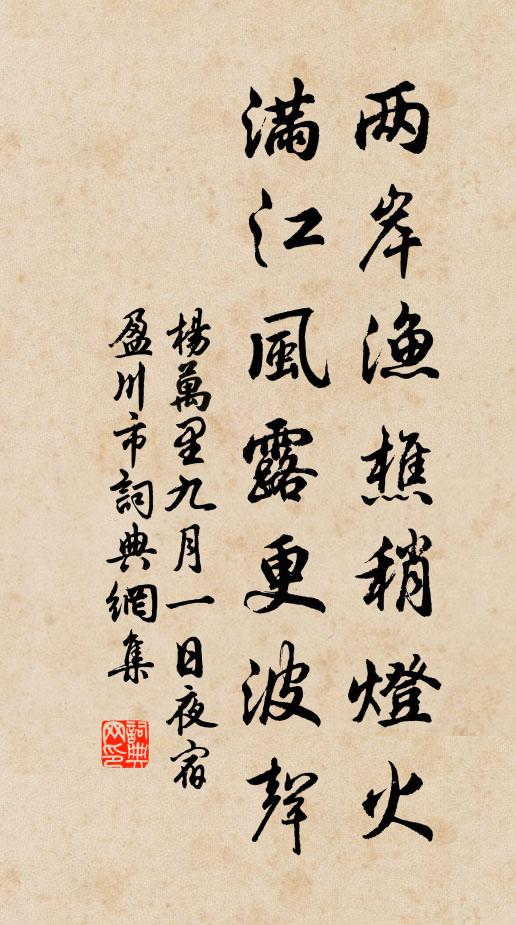 两岸漁樵稍燈火
滿江風露更波聲
楊萬里九月一日夜宿
盈川市詞典網集
詞典
网印